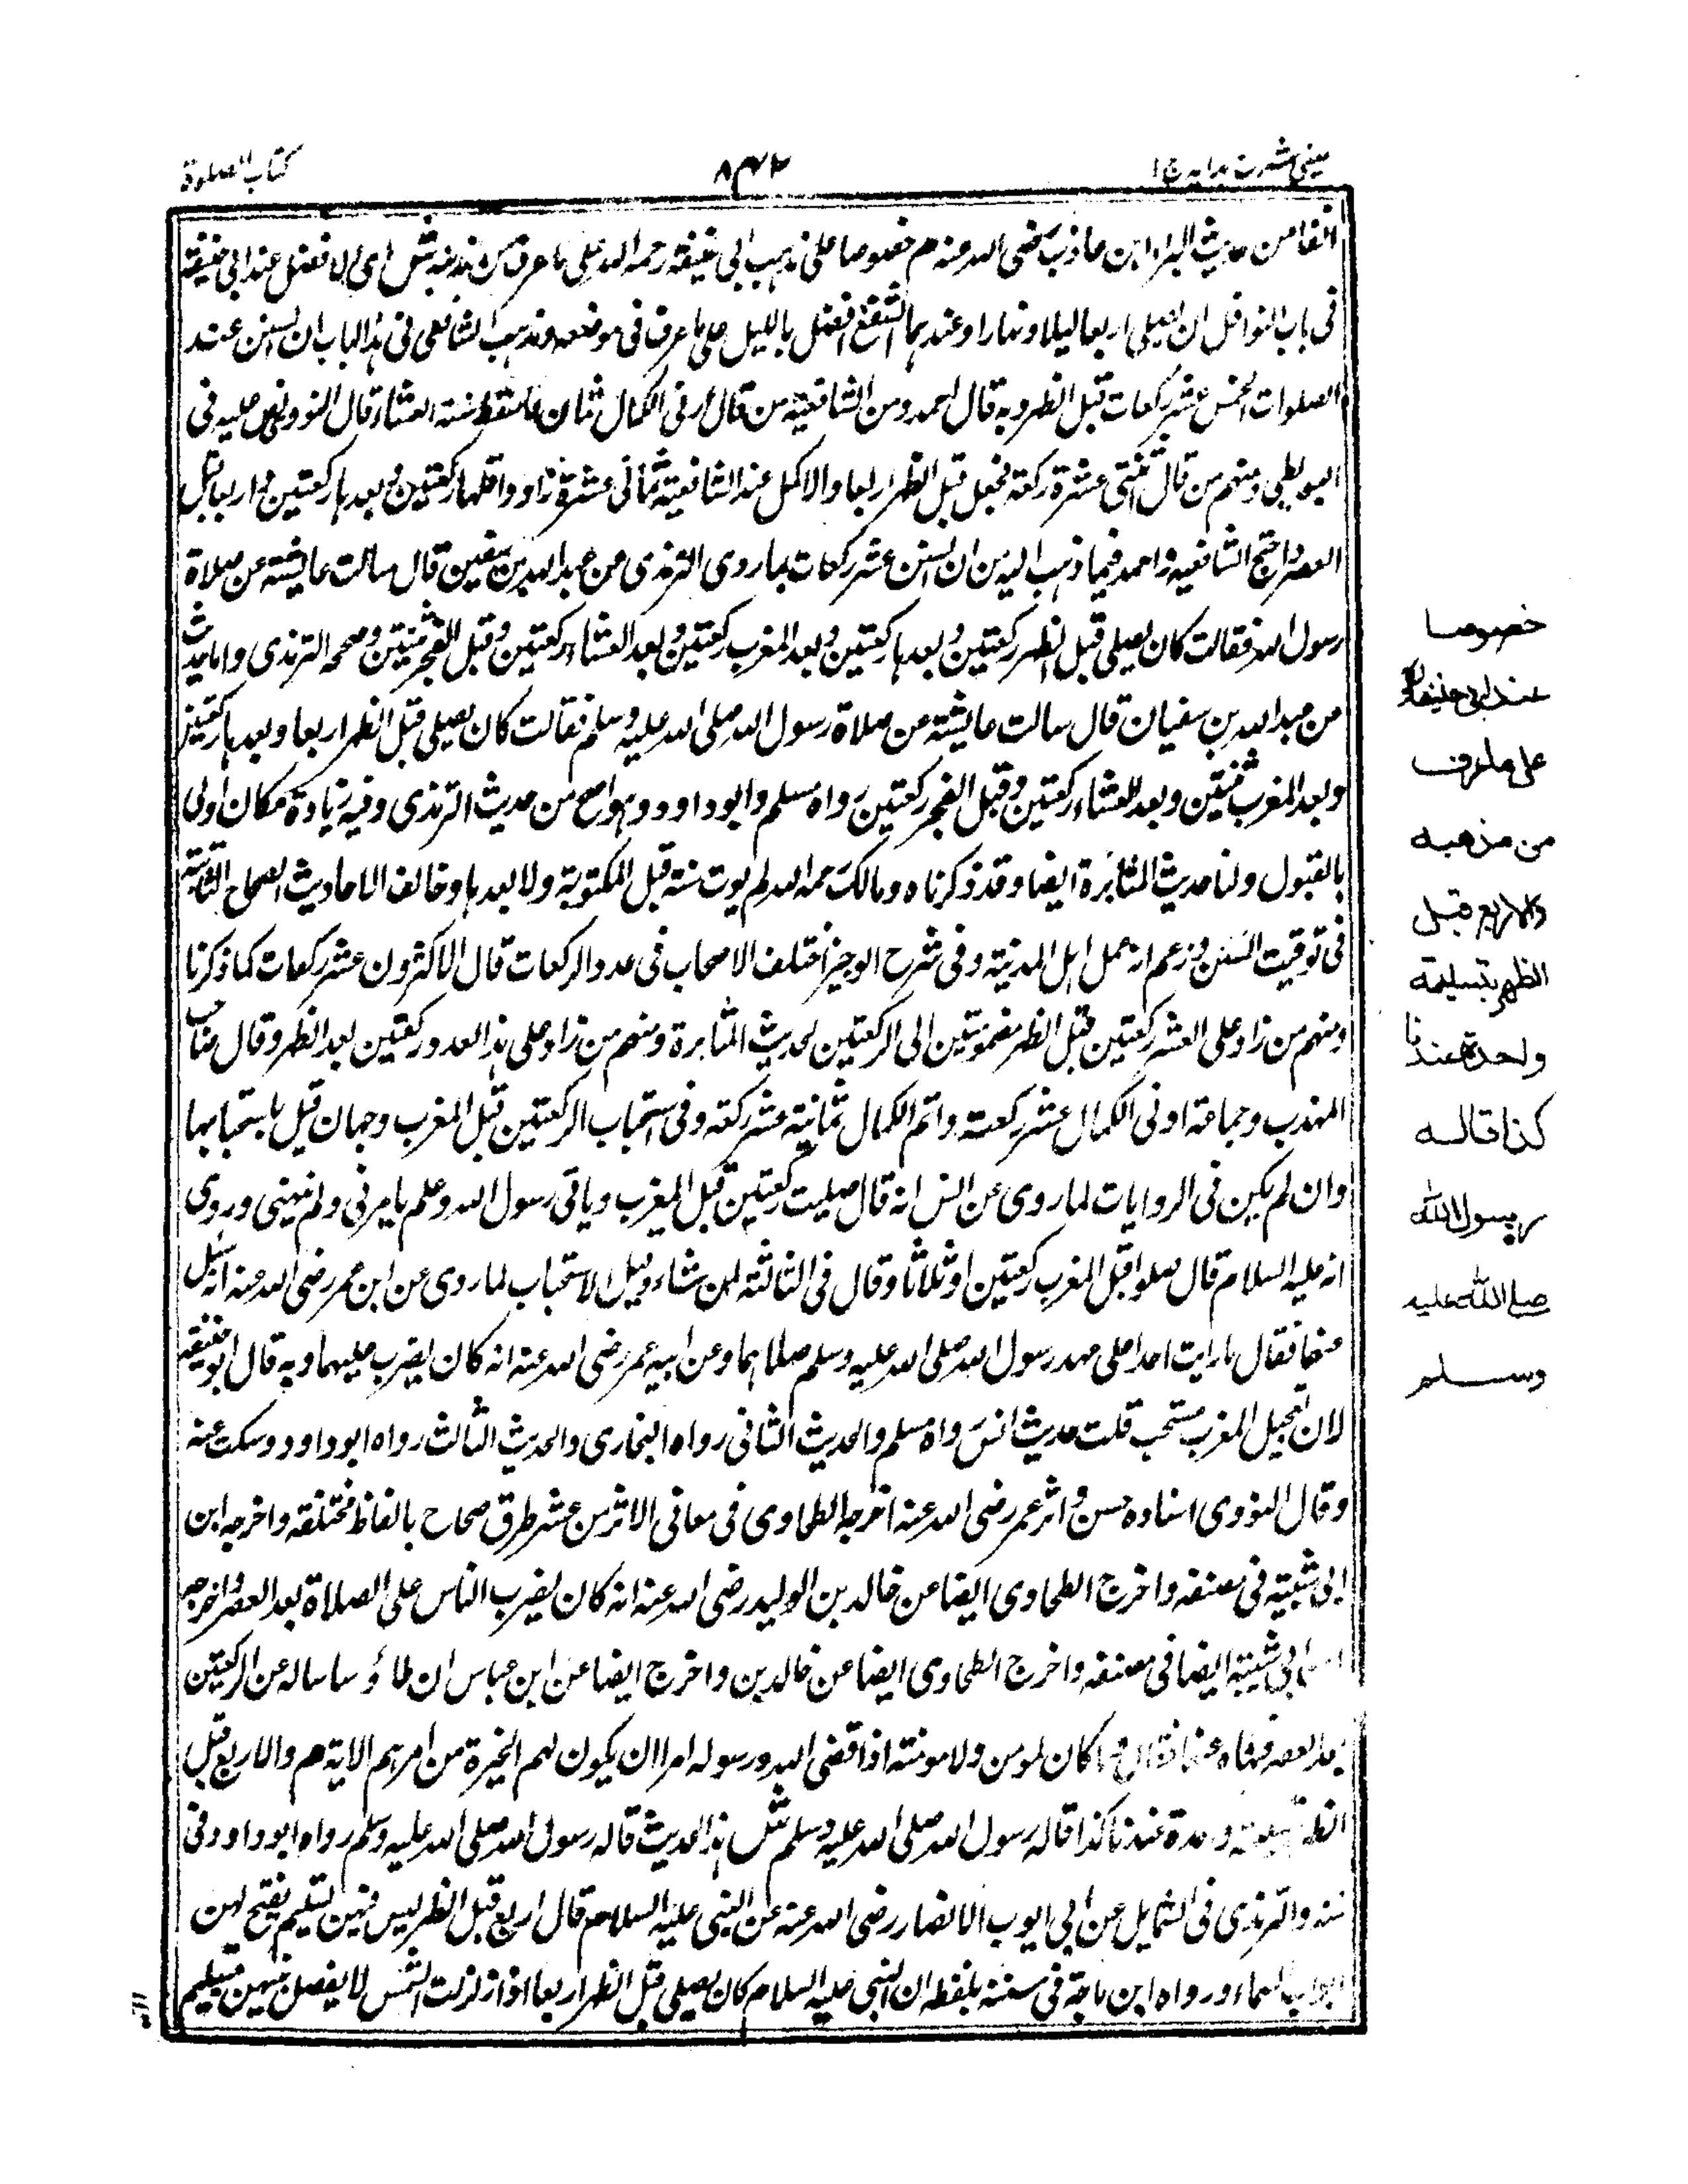 عينى شرح هدايه ج ١
٨٤٢
كتاب الصلوة
انفا من حديث البراء ابن عازب رضى الله عنه م خصوصا على مذهب ابى حنيفة رحمه الله على ما عرف من مذهبه ش اى الافضل عند ابى حنيفة
فى باب النوافل ان يصلى اربعا ليلا ونهارا وعندهما الشفع افضل بالليل على ما عرف فى موضعه ومذهب الشافعى فى هذا الباب ان السنن عند
الصلوات الخمس عشر ركعات قبل الظهر وبه قال احمد ومن الشافعية من قال ادنى الكمال ثمان فاسقط سنة العشاء قال النووى نص عليه فى
البويطى ومنهم من قال ثنتى عشرة ركعة فجعل قبل الظهر اربعا والاكمل عند الشافعية ثمانى عشرة زادوا قبلها ركعتين وبعدها ركعتين واربعا قبل
العصر واحتج الشافعية واحمد فيما ذهب اليه من ان السنن عشر ركعات بما روى الترمذى من عبد الله بن شقيق قال سالت عايشة عن صلاة
رسول الله فقالت كان يصلى قبل الظهر ركعتين وبعدها ركعتين وبعد المغرب ركعتين وبعد العشاء ركعتين وقبل الفجر ثنتين وصححه الترمذى واما حديث
من عبد الله بن سفيان قال سالت عايشة من صلاة رسول الله صلى الله عليه وسلم فقالت كان يصلى قبل الظهر اربعا وبعدها ركعتين
وبعد المغرب ثنتين وبعد العشاء ركعتين وقبل الفجر ركعتين رواه مسلم وابو داود وهو اصح من حديث الترمذى وفيه زيادة فكان اولى
بالقبول ولنا حديث المثابرة ايضا وقد ذكرناه ومالك رحمه الله لم يوت سنة قبل المكتوبة ولا بعدها وخالف الاحاديث الصحاح الثابتة
فى توقيت السنن وزعم انه عمل اهل المدينة وفى شرح الوجيز اختلف الاصحاب فى عدد الركعات قال الاكثرون عشر ركعات كما ذكرنا
ومنهم من زاد على العشر ركعتين قبل الظهر مضمومتين الى الركعتين لحديث المثابرة ومنهم من زاد على هذا العدد ركعتين بعد الظهر وقال صاحب
المهذب وجماعة ادنى الكمال عشر ركعة واتم الكمال ثمانية عشر ركعة وفى استحباب الركعتين قبل المغرب وجهان قيل باستحبابها
وان لم يكن فى الروايات لما روى عن انس انه قال صليت ركعتين قبل المغرب ... رسول الله ... يامرنى ولم ينهنى وروى
انه عليه السلام قال صلوا قبل المغرب ركعتين او ثلاثا وقال فى الثالثة لمن شاء وقيل الاستحباب لما روى عن ابن عمر رضى الله عنه انه سئل
عنها فقال ما رايت احدا على عهد رسول الله صلى الله عليه وسلم صلاهما وعن ابيه عمر رضى الله عنه انه كان يضرب عليهما وبه قال ابو حنيفة
لان تعجيل المغرب مستحب قلت حديث انس رواه مسلم والحديث الثانى رواه البخارى والحديث الثالث رواه ابو داود وسكت عنه
وقال النووى اسناده حسن واثر عمر رضى الله عنه اخرجه الطحاوى فى معانى الاثر من عشر طرق صحاح بالفاظ مختلفة واخرجه ابن
ابى شيبة فى مصنفه واخرج الطحاوى ايضا عن خالد بن الوليد رضى الله عنه انه كان يضرب الناس على الصلاة بعد العصر واخرجه
ابن ابى شيبة ايضا فى مصنفه واخرج الطحاوى ايضا عن خالد بن واخرج ايضا عن ابن عباس ان طاؤسا ساله عن الركعتين
بعد العصر فنهاه عنها فقال وما كان لمومن ولا مومنة اذا قضى الله ورسوله امرا ان يكون لهم الخيرة من امرهم الاية م والاربع قبل
الظهر بتسليمة واحدة عندنا كذا قاله رسول الله صلى الله عليه وسلم ش هذا الحديث قاله رسول الله صلى الله عليه وسلم رواه ابو داود فى
سننه والترمذى فى الشمايل عن ابى ايوب الانصار رضى الله عنه عن النبى عليه السلام قال اربع قبل الظهر ليس فيهن تسليم تفتح لهن
ابواب السماء ورواه ابن ماجة فى سننه بلفظه ان النبى عليه السلام كان يصلى قبل الظهر اربعا اذا زالت الشمس لا يفصل بينهن بتسليم
خصوصا
عند ابى حنيفة
على ما عرف
من مذهبه
والاربع قبل
الظهر بتسليمة
واحدة عندنا
كذا قاله
رسول الله
صلے الله عليه
وسلم